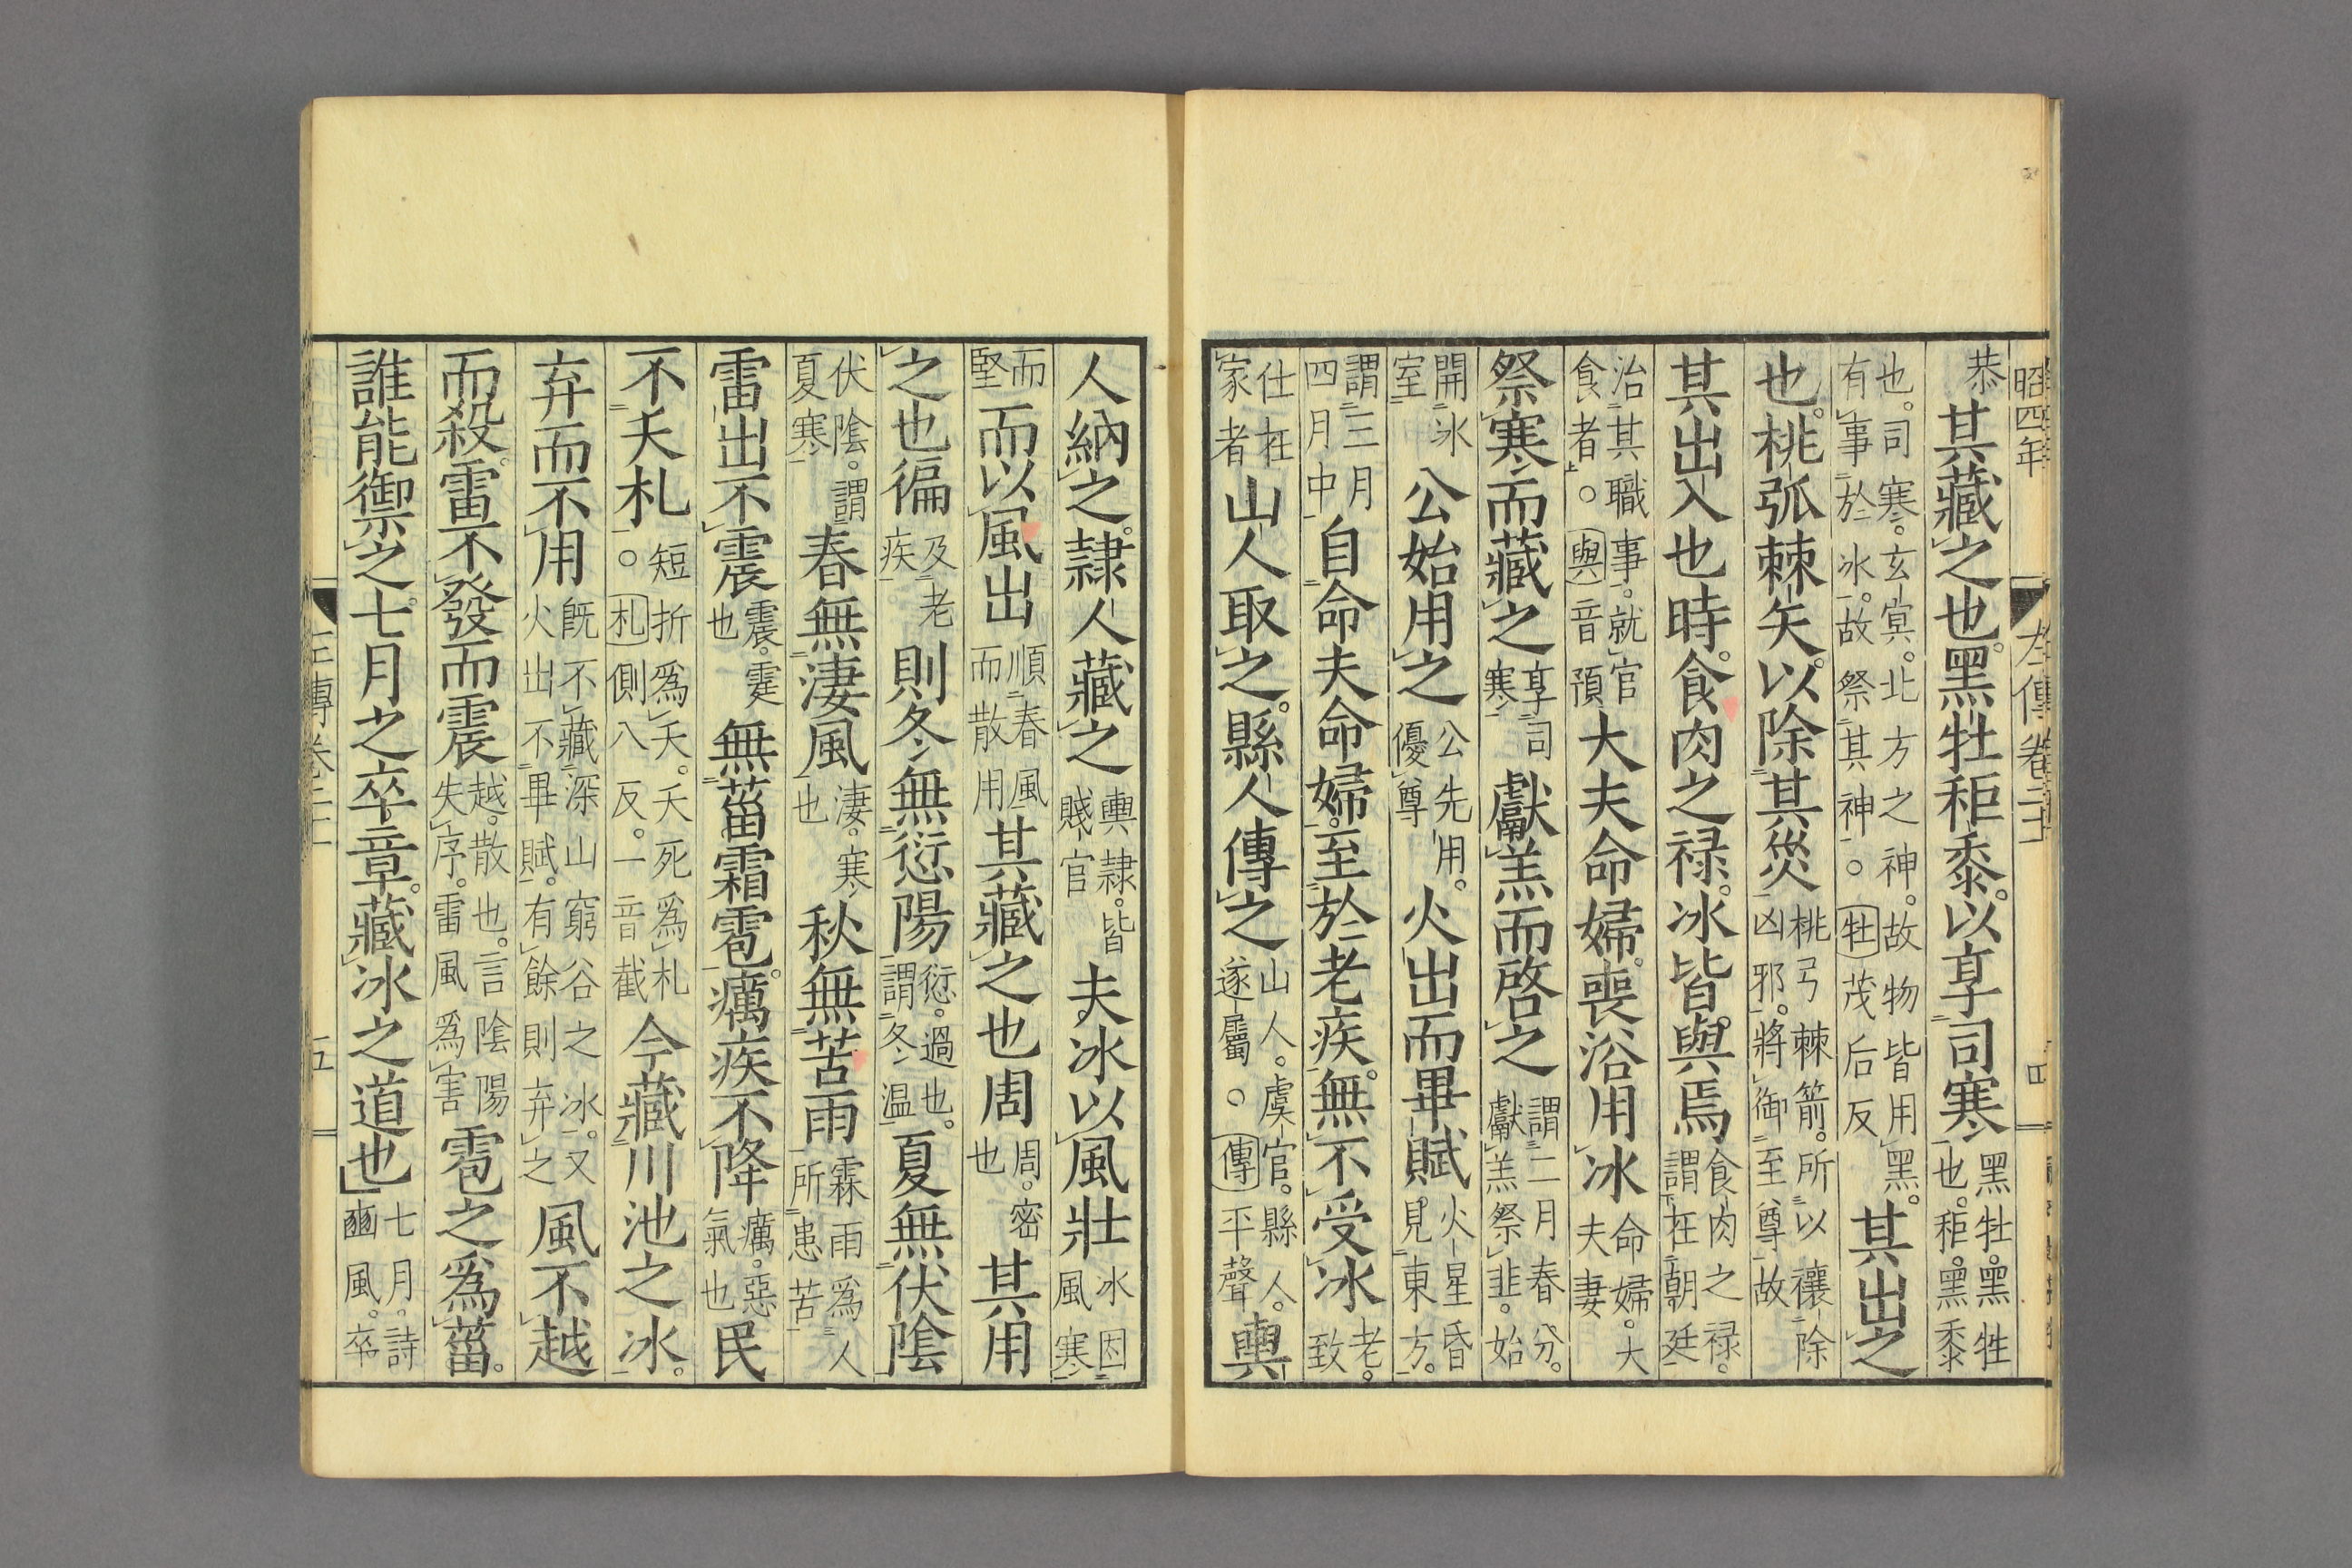 昭四年 左傳卷二十一 四
恭其藏之也。黑牡秬黍。以享司寒黑牡。黑牲也。秬。黑黍
也。司寒。玄冥。北方之神。故物皆用黑。有事於冰。故祭其神。○牡茂后反其出之
也。桃弧棘矢。以除其災桃弓棘箭。所以禳除凶邪。將御至尊故
其出入也時。食肉之禄。冰皆與焉食肉之禄。謂在朝廷
治其職事。就官食者。○與音預大夫命婦。喪浴用冰命婦。大夫妻
祭寒而藏之享司寒獻羔而啓之謂二月春分。獻羔祭韭。始
開冰室公始用之公先用。優尊火出而畢賦火星昏見東方。
謂三月四月中自命夫命婦。至於老疾。無不受冰老。致
仕在家者山人取之。縣人傳之山人。虞官。縣人。遂屬。○傳平聲輿
人納之。隷人藏之輿隷。皆賤官夫冰以風壯冰因風寒
而堅而以風出順春風而散用其藏之也周周。密也其用
之也徧及老疾則冬無愆陽愆。過也。謂冬温夏無伏陰
伏陰。謂夏寒春無淒風淒。寒也秋無苦雨霖雨爲人所患苦
雷出不震震。霆也無菑霜雹。癘疾不降癘。惡氣也民
不夭札。○短折爲夭。夭死爲札札側八反。一音截今藏川池之冰。
弃而不用既不藏深山窮谷之冰。又火出不畢賦。有餘則弃之風不越
而殺。雷不發而震越。散也。言陰陽失序。雷風爲害雹之爲菑。
誰能禦之。七月之卒章。藏冰之道也七月。詩豳風。卒
五